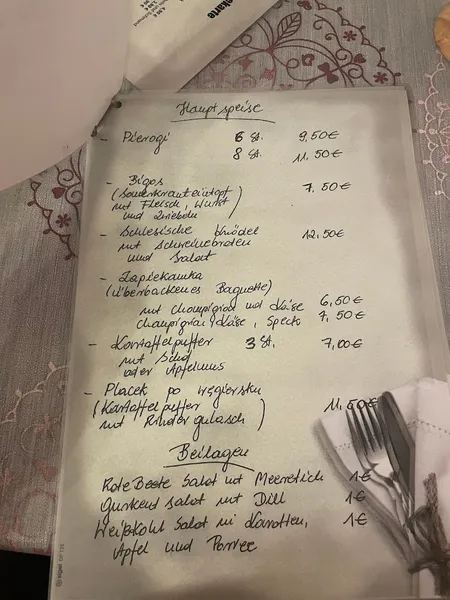 karte
Hauptspeise
- Pierogi 6 St. 9,50€
8 St. 11,50€
- Bigos
(Sauerkrauteintopf 7,50€
mit Fleisch, Wurst
und Zwiebeln)
- Schlesische Knödel 12,50€
mit Schweinebraten
und Salat
- Zapiekanka
(Überbackenes Baguette)
mit Champignon und Käse 6,50€
Champignon, Käse, Speck 7,50€
- Kartoffelpuffer 3 St. 7,00€
mit
oder Apfelmus
- Placek po węgiersku
(Kartoffelpuffer 11,50€
mit Rindergulasch)
Beilagen
Rote Beete Salat mit Meerrettich 1€
Gurkensalat mit Dill 1€
Weißkohl Salat mit Karotten, 1€
Apfel und Porree